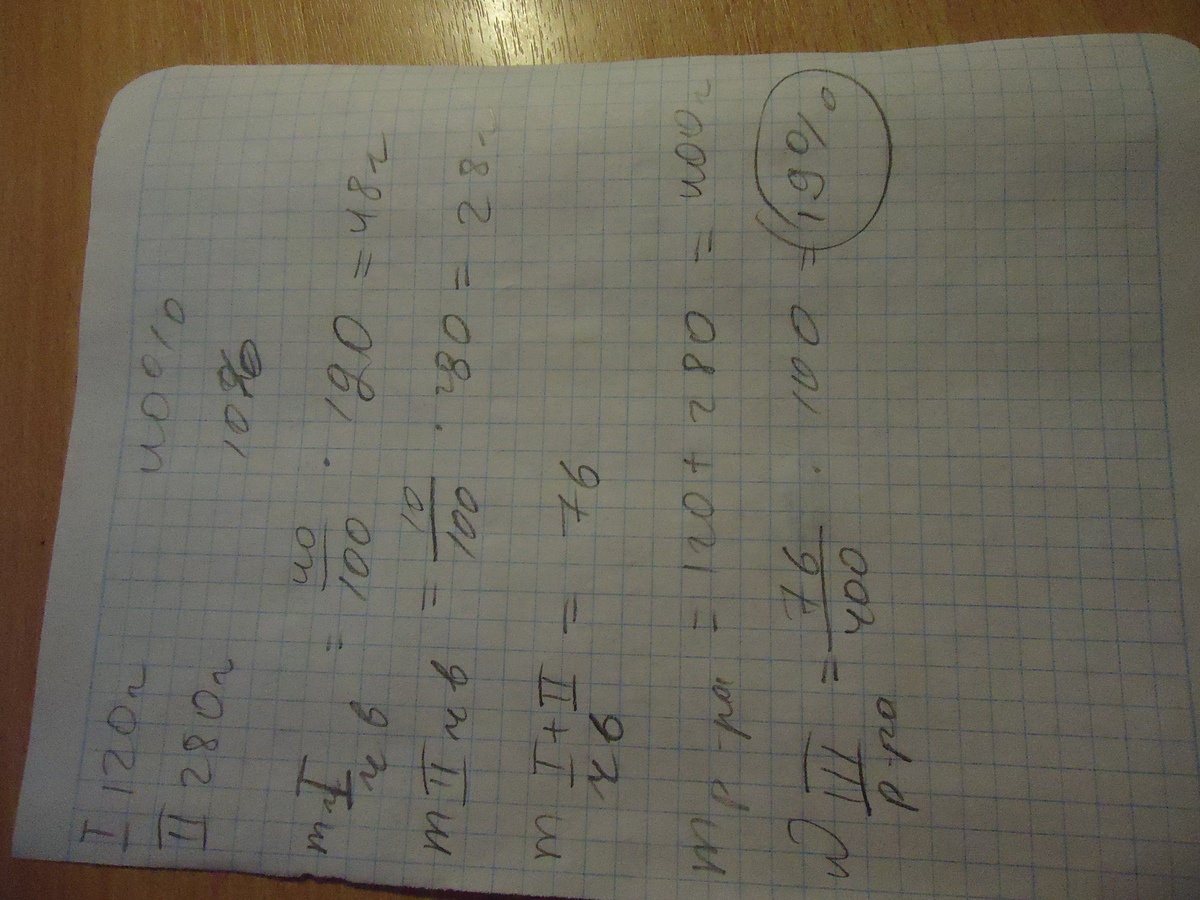 I 120г 40%
II 280г 10%
m I ч в = 40/100 · 120 = 48г
m II ч в = 10/100 · 280 = 28г
m I + II ч в = 76
m р-ра = 120 + 280 = 400г
W III р-ра = 76/400 · 100 = 19%